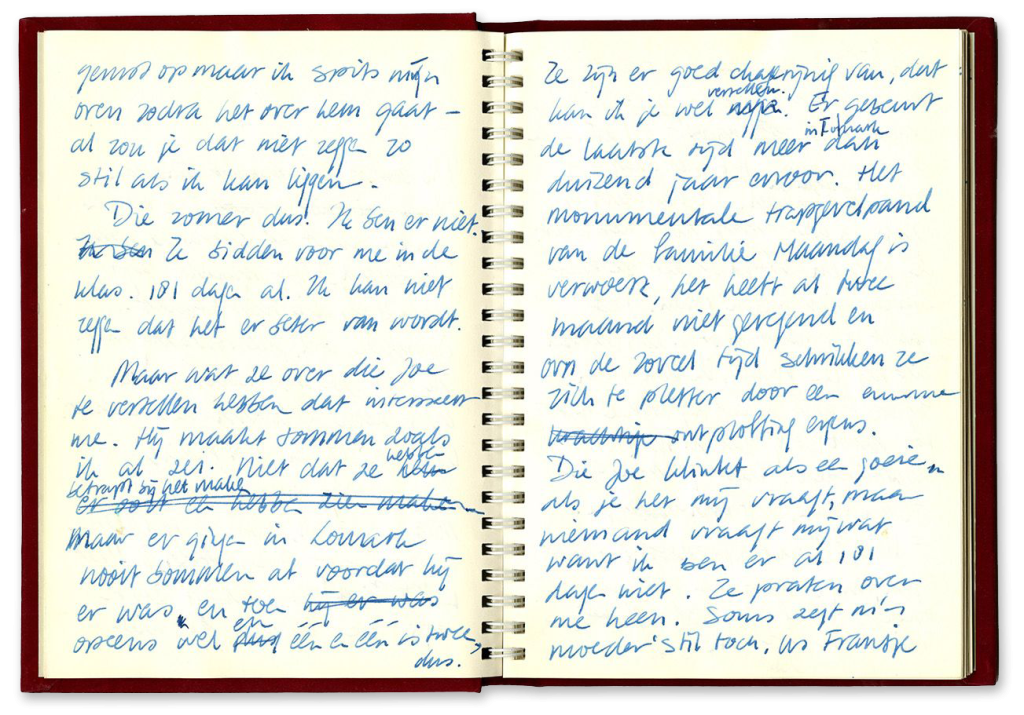 op maar ik spits mijn
oren zodra het over hem gaat –
al zou je dat niet zeggen zo
stil als ik kan liggen.
Die zomer dus. Ik ben er niet.
Ik ben Ze bidden voor me in de
klas. 181 dagen al. Ik kan niet
zeggen dat het er beter van wordt.
Maar wat ze over die Joe
te vertellen hebben dat interesseert
me. Hij maakt bommen zoals
hebben
ik al zei. Niet dat ze hem
betrapt bij het maken
er ooit een hebben zien maken
maar er gingen in Lomark
nooit bommen af voordat hij
er was, en toen hij er was
en
opeens wel dus één en één is twee,
dus.
Ze zijn er goed chagrijnig van, dat
vertellen.
kan ik je wel zeggen. Er gebeurt
in Lomark
de laatste tijd meer dan
duizend jaar ervoor. Het
monumentale trapgevelpand
van de familie Maandag is
verwoest, het heeft al twee
maand niet geregend en
om de zoveel tijd schrikken ze
zich te pletter door een enorme
krachtige ontploffing ergens.
Die Joe klinkt als een goeie
als je het mij vraagt, maar
niemand vraagt mij wat
want ik ben er al 181
dagen niet. Ze praten over
me heen. Soms zegt m'n
moeder 'stil toch, us Fransje